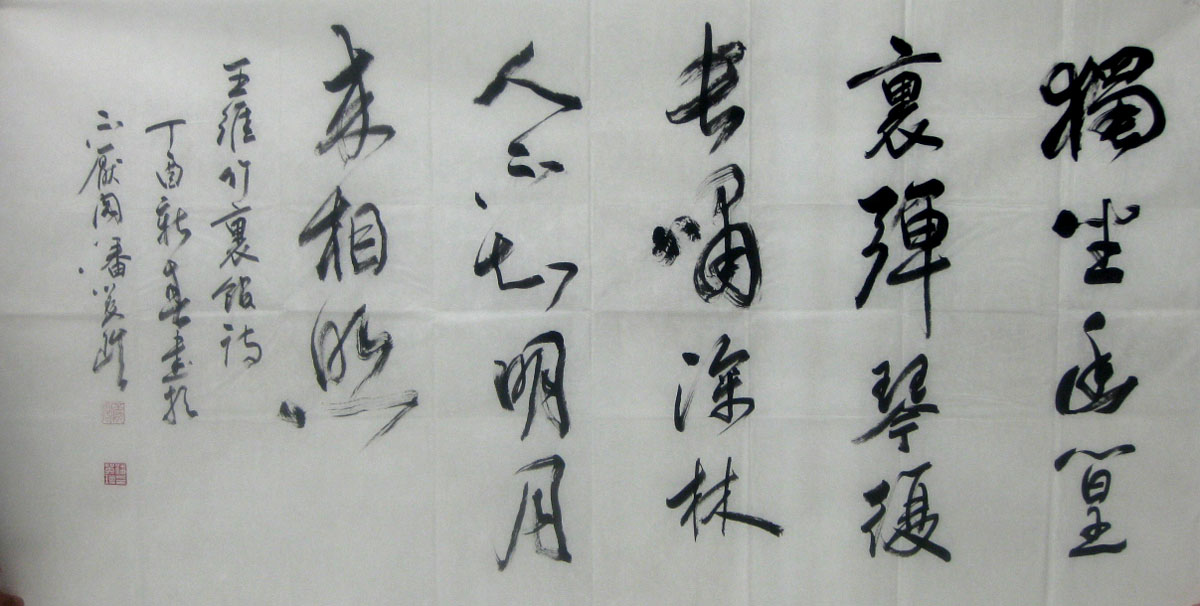 獨坐幽篁
裏彈琴復
長嘯深林
人不知明月
来相照
王維竹裏館詩
丁酉新春書於
不厭閣潘